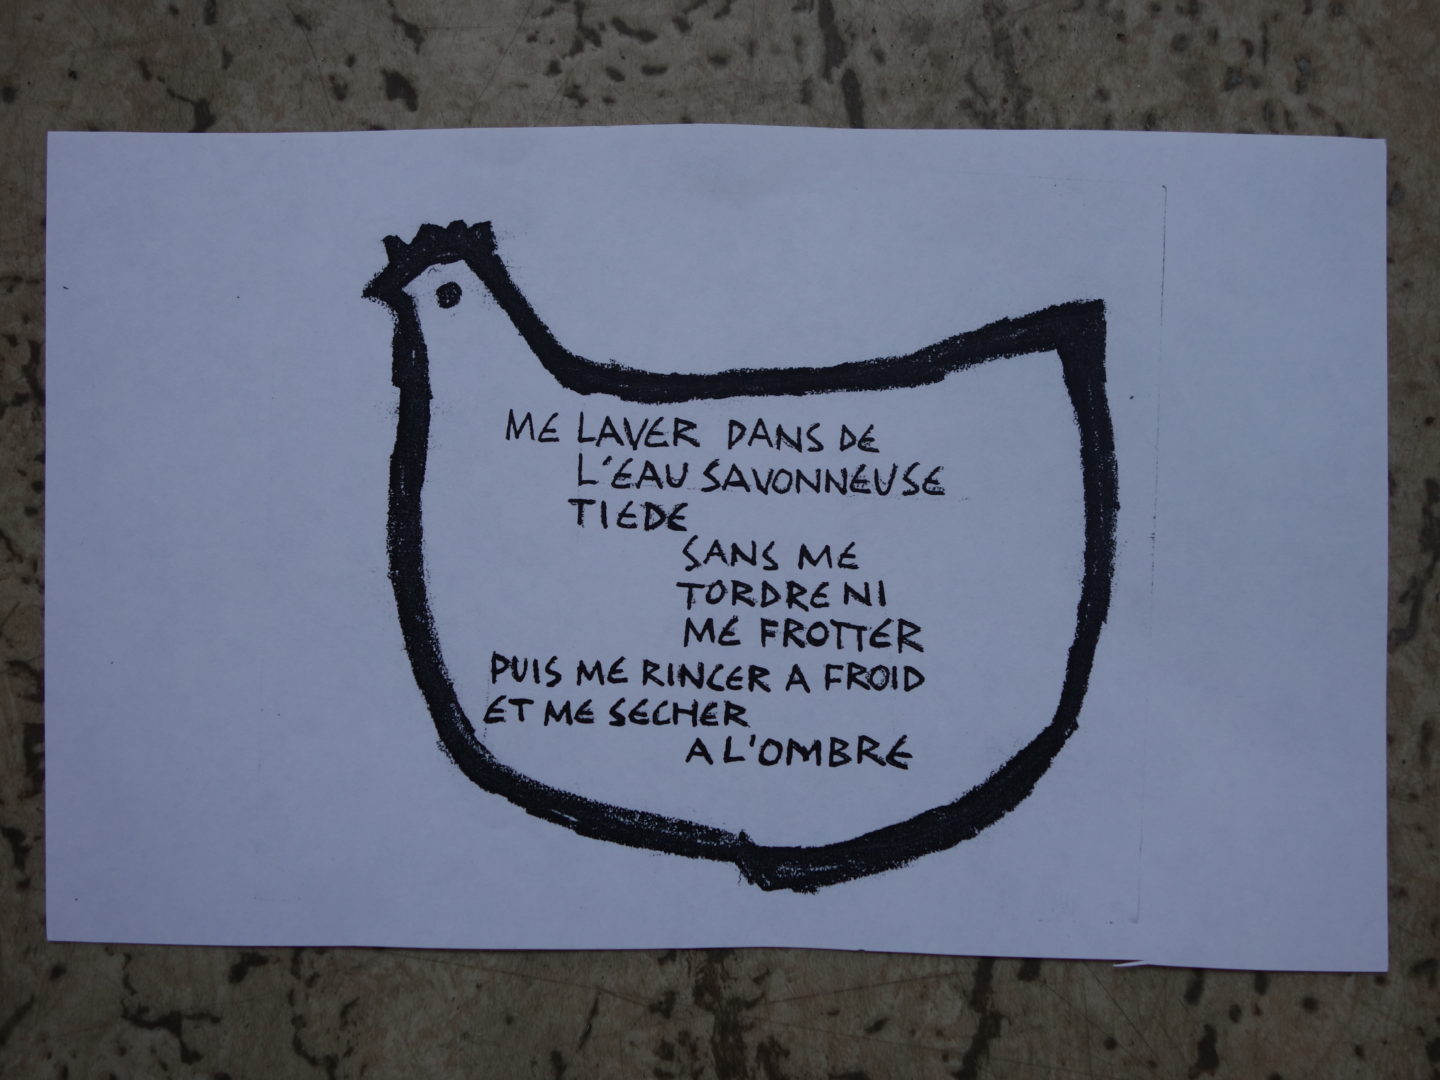 ME LAVER DANS DE
L'EAU SAVONNEUSE
TIEDE
SANS ME
TORDRE NI
ME FROTTER
PUIS ME RINCER A FROID
ET ME SECHER
A L'OMBRE